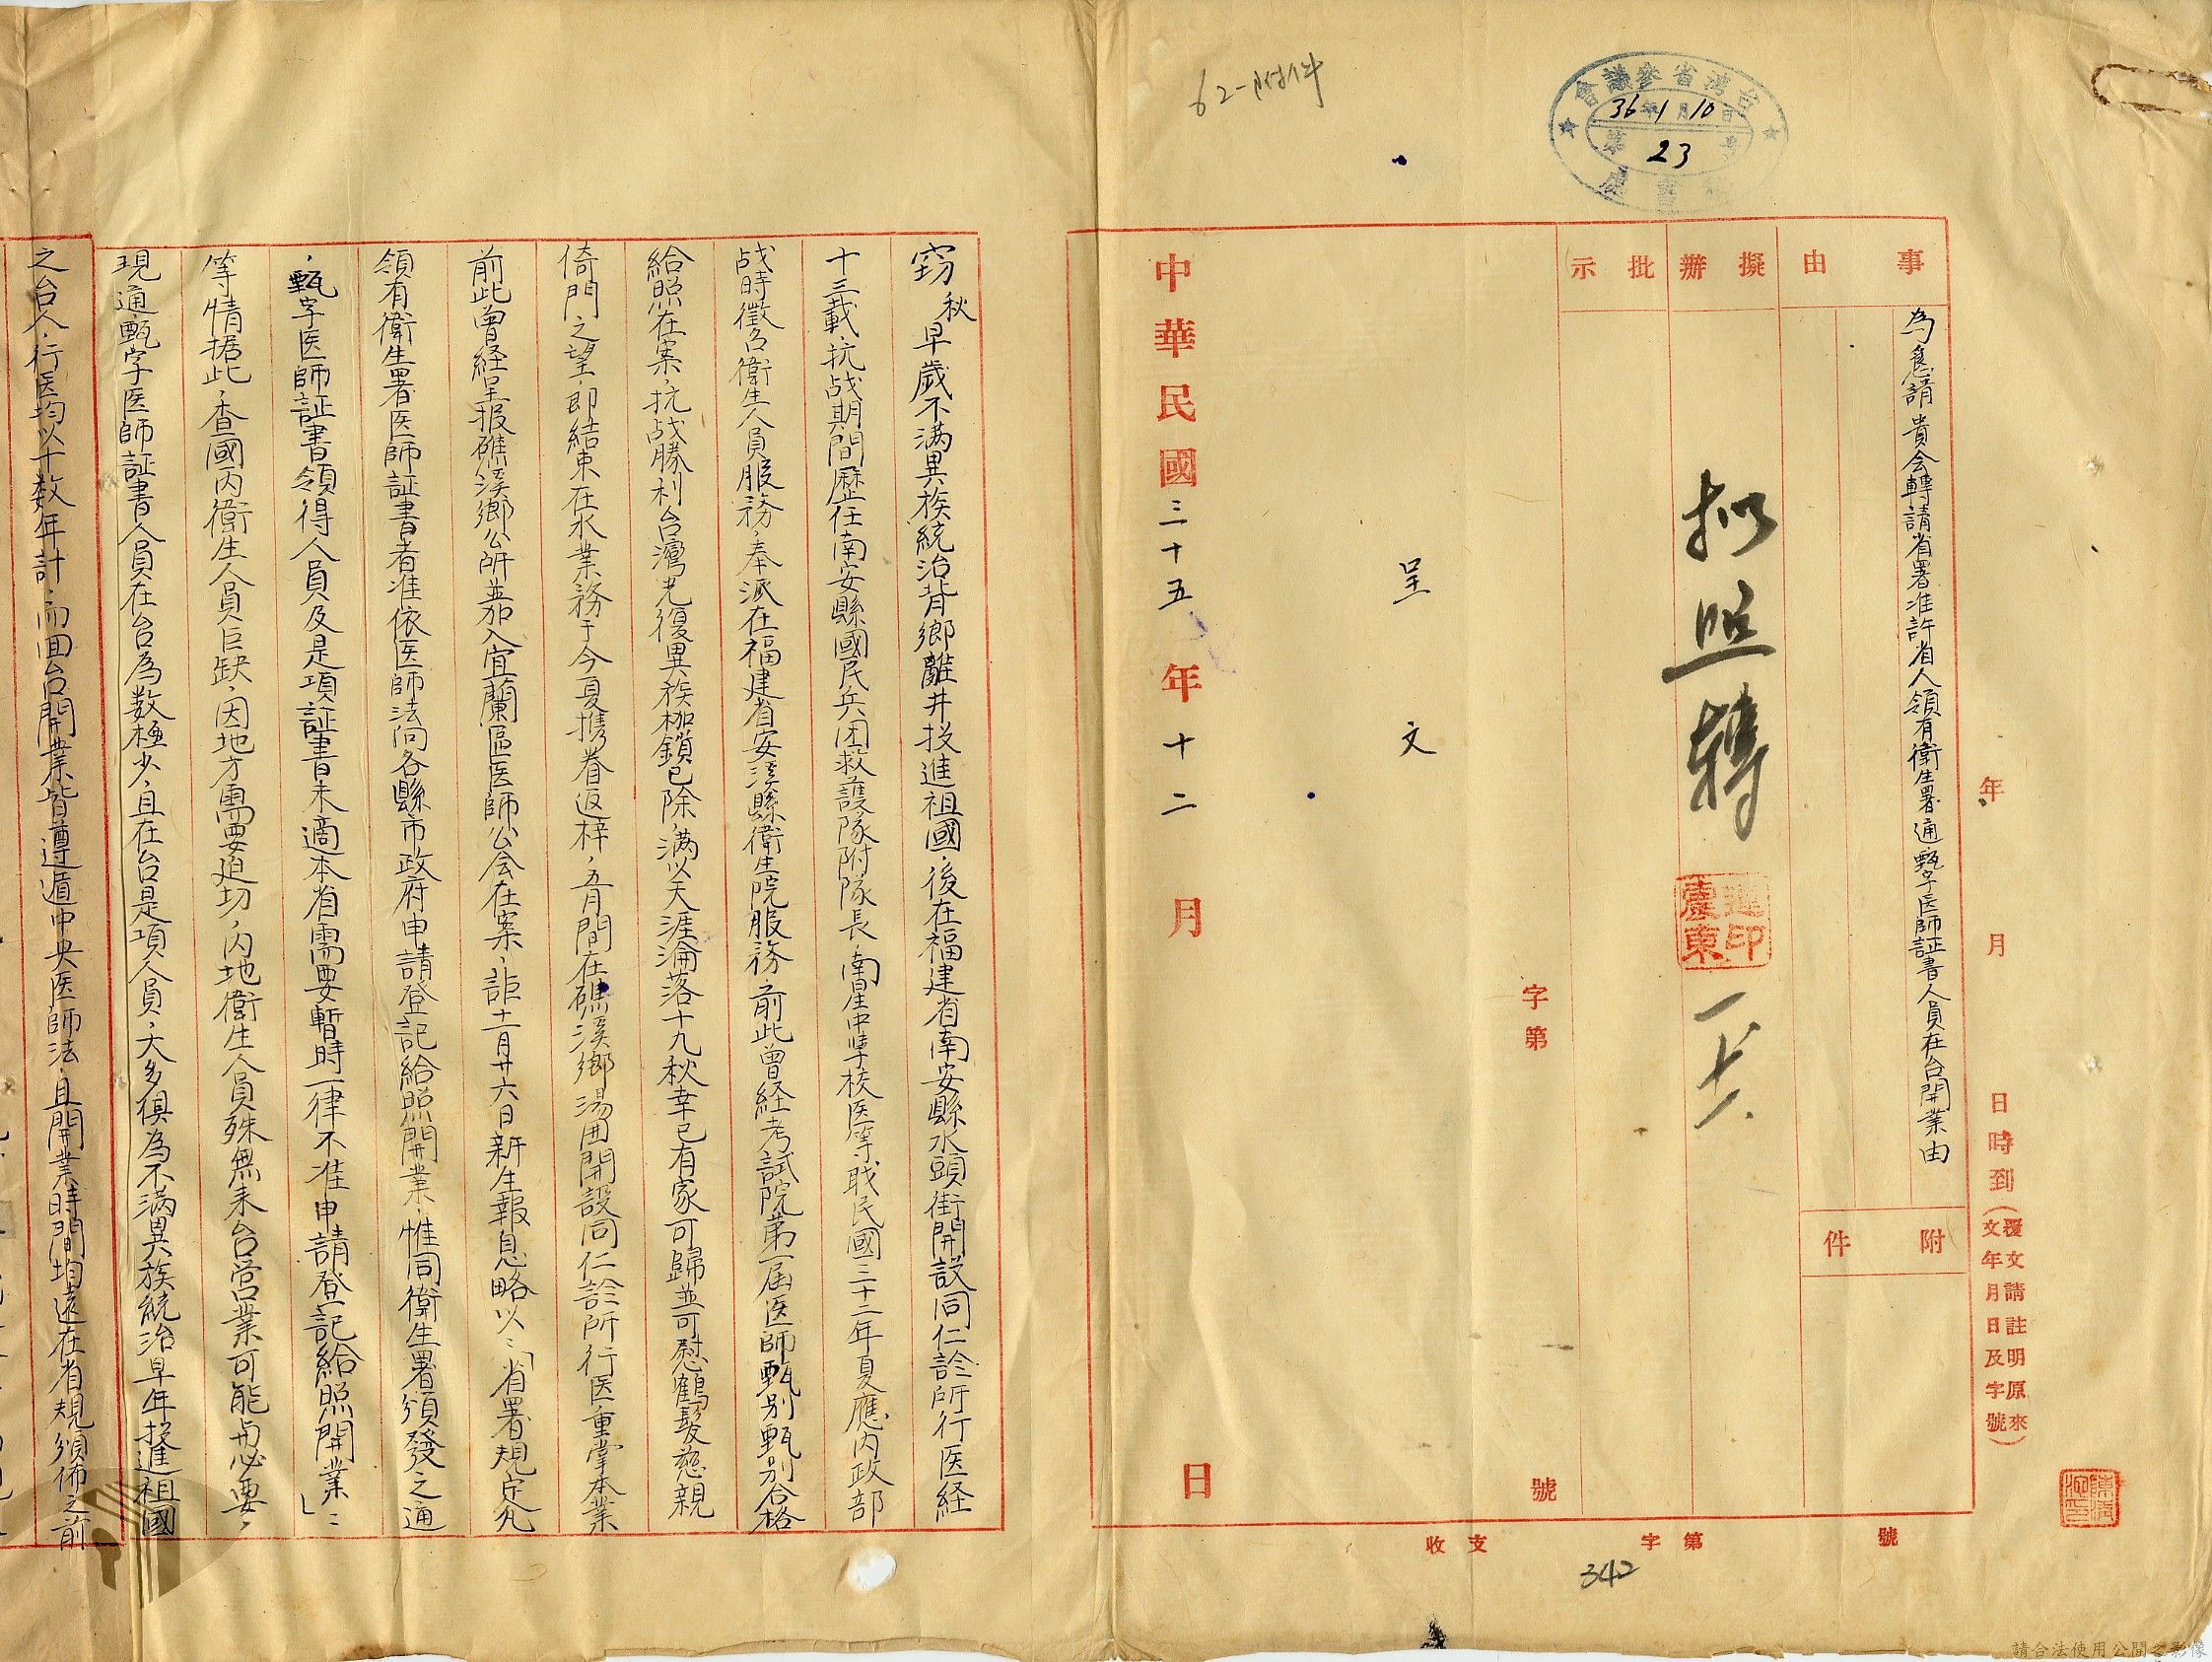 62-附件
台灣省參議會
36年1月10日
第23号
秘書處
年 月 日 時到(覆文請註明原來
文年月日及字號)
事由
為懇請 貴会轉請省署准許省人領有衛生署通甄字医師証書人員在台開業由
附件
擬辦
拟照轉
連震東印
批示
字第 號
呈文
中華民國三十五年十二月 日
收支 字第 號
342
竊秋早歲不满異族統治背鄉離井投進祖國,後在福建省南安縣水頭街開設同仁診所行医経
十三載,抗战期間歷任南安縣國民兵团救護隊附隊長,南星中學校医等职民國三十二年夏應內政部
战時徵召衛生人員服務,奉派在福建省安溪縣衛生院服務,前此曾経考試院第一届医師甄别甄别合格
給照在案,抗战勝利台灣光復異族枷鎖已除,满以天涯淪落十九秋幸已有家可歸並可慰鶴髮慈親
倚門之望,即結束在水業務于今夏携眷返梓,五月間在礁溪鄉湯囲開設同仁診所行医重掌本業
前此曾経呈报礁溪鄉公所並加入宜蘭區医師公会在案,詎十一月廿六日新生報息略以:「省署規定凡
領有衛生署医師証書者准依医師法向各縣市政府申請登記給照開業,惟同衛生署頒發之通
,甄字医師証書領得人員及是項証書未適本省需要暫時一律不准申請登記給照開業」:
等情据此,查國內衛生人員巨缺,因地方需要迫切,內地衛生人員殊無来台营業可能与必要,
現通甄字医師証書人員在台為数極少,且在台是項人員,大多俱為不满異族統治早年投進祖國
之台人,行医均以十数年計,而回台開業皆遵遁中央医師法,且開業時間均遠在省規頒佈之前
請合法使用公開之影像